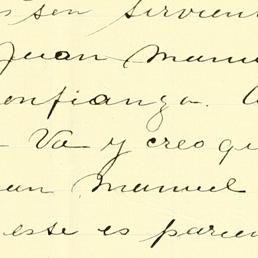 son sirvient
Juan Manu
onfianza.
Va y creo qu
uan Manuel
este es parien